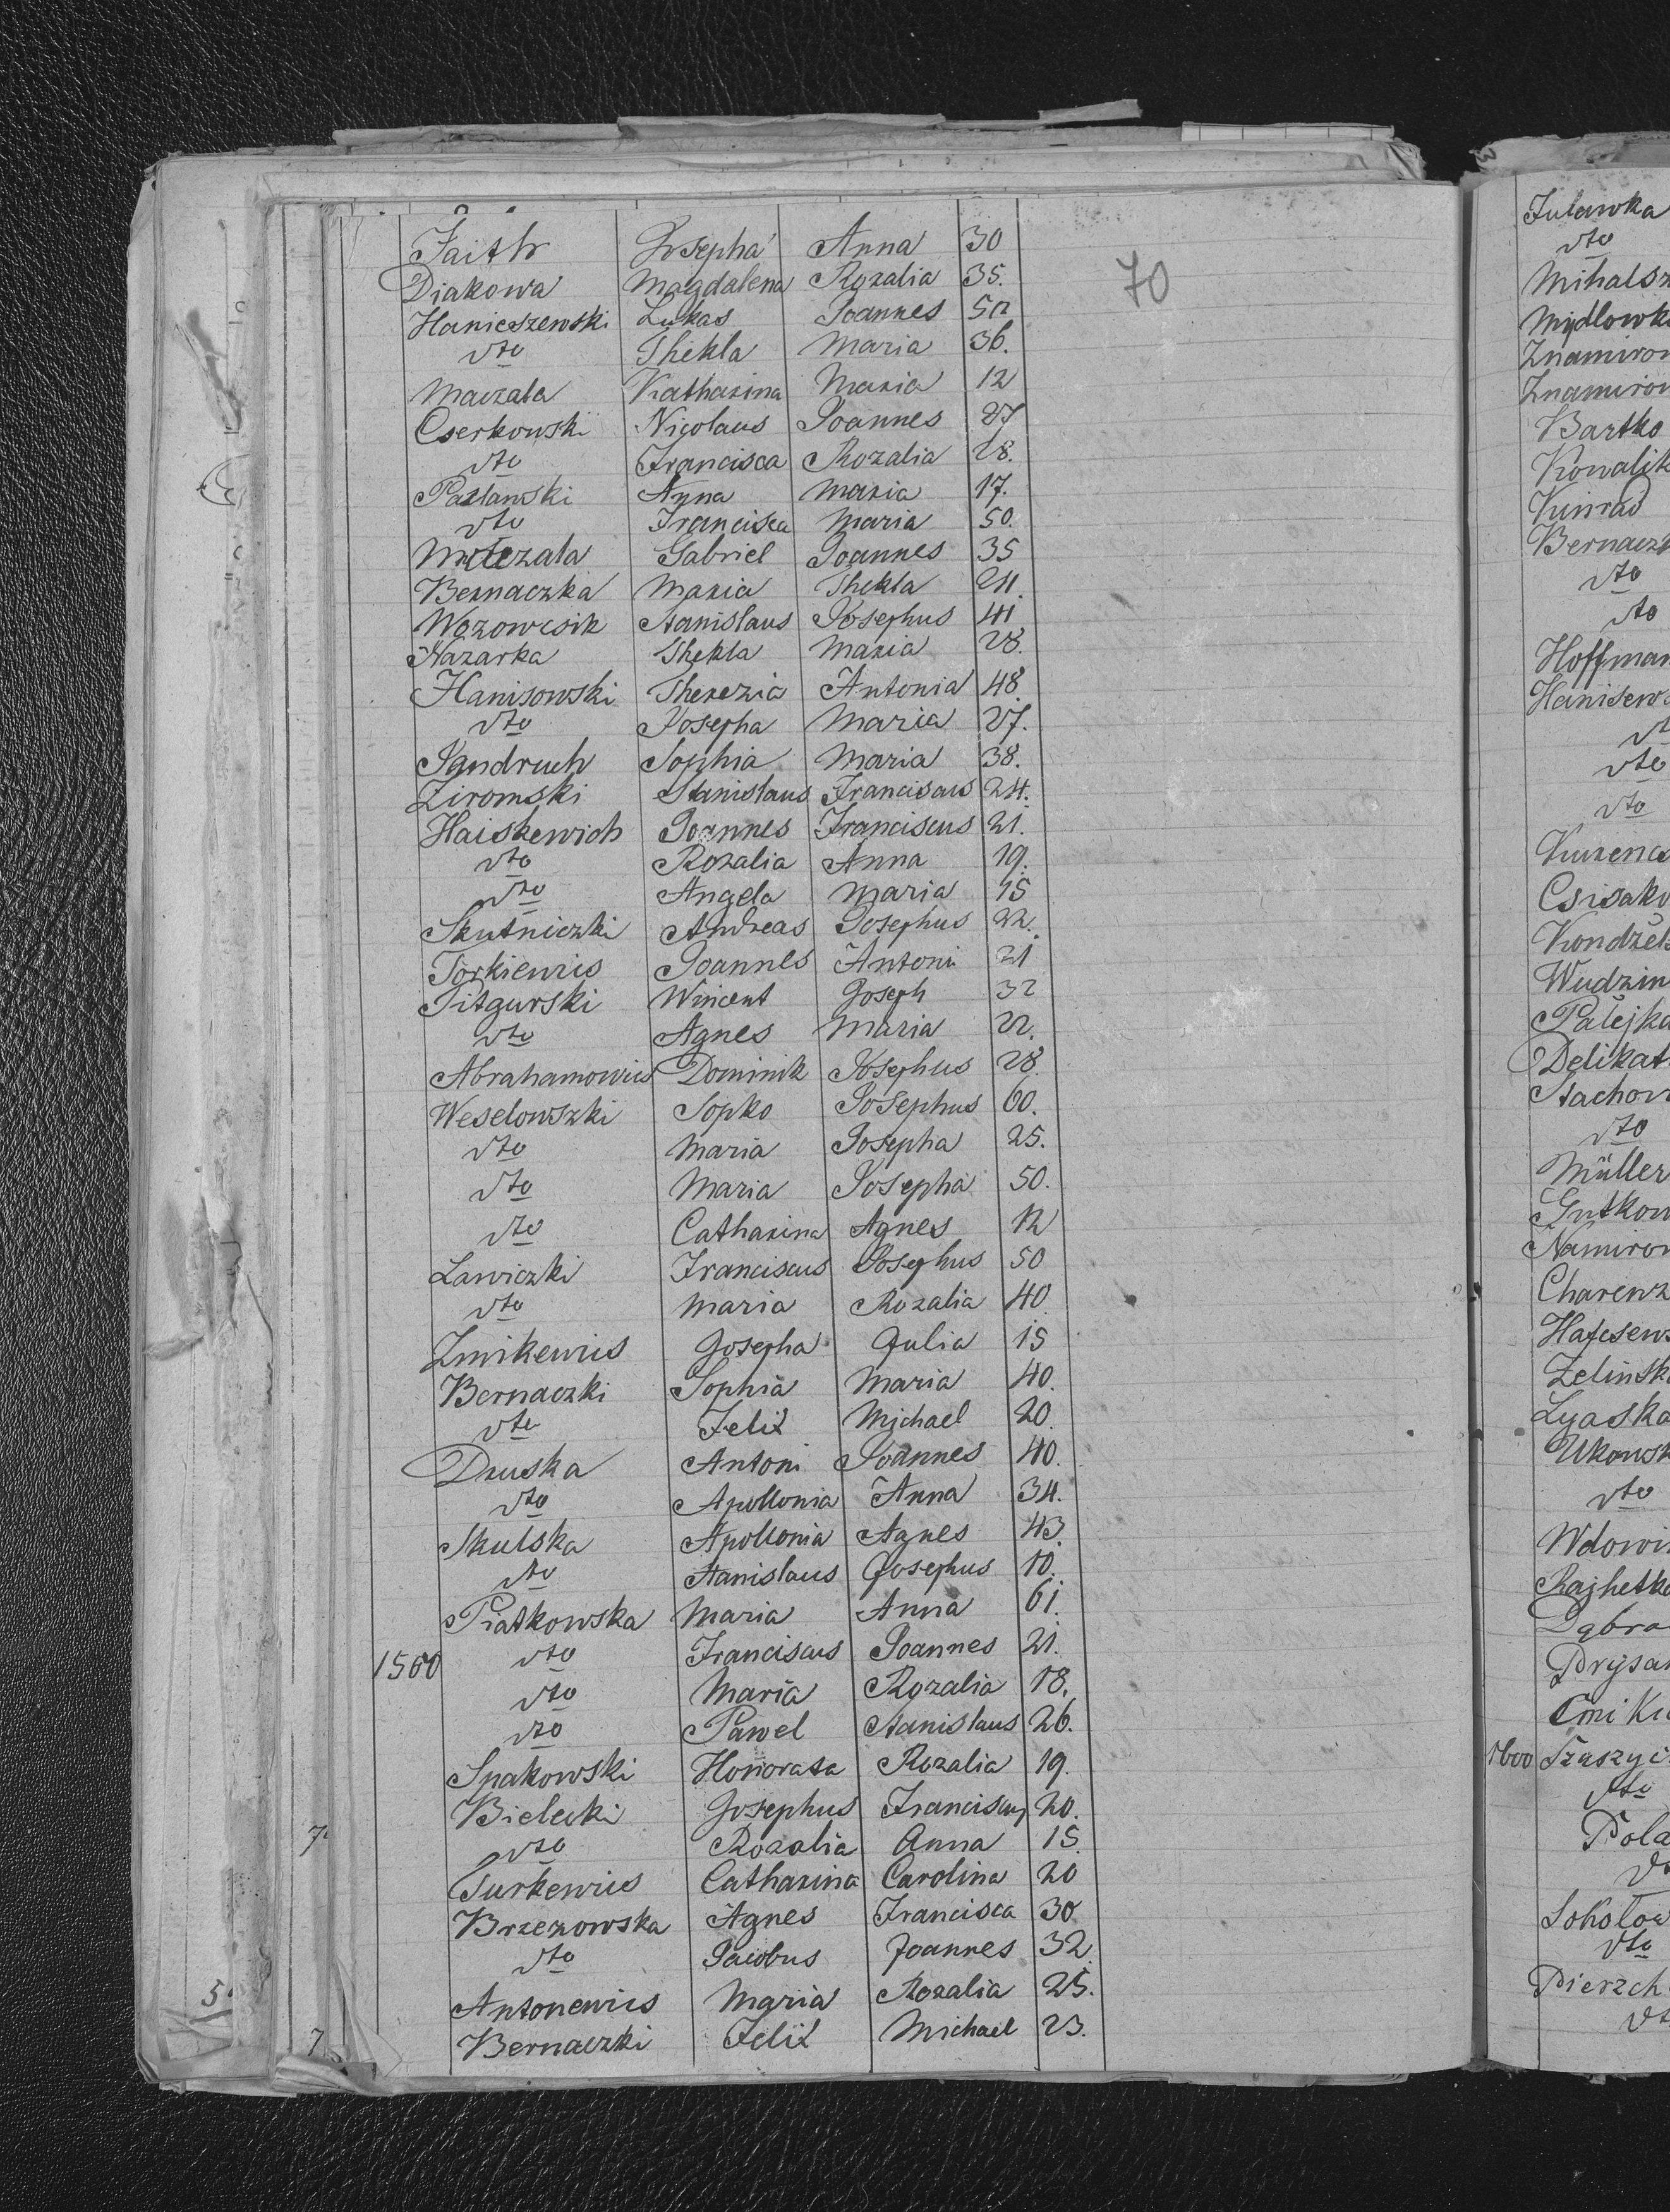 Faith Josepha Anna 30
Diakowa Magdalena Rozalia 35.
Hanieszewski Lukas Joannes 50
dto Thekla Maria 36.
Maczala Katharina Maria 12
Cserkowski Nicolaus Joannes 27
dto Francisca Rozalia 28.
Pazlawski Anna Maria 17.
dto Francisca Maria 50.
Matczala Gabriel Joannes 35
Bernaczka Maria Thekla 24.
Wozowcsik Stanislaus Josephus 41
Nazarka Thekla Maria 28.
Hanisowski Therezia Antonia 48
dto Josepha Maria 27.
Jandruch Sophia Maria 38.
Ziromski Stanislaus Franciscus 24.
Haiskewich Joannes Franciscus 21.
dto Rozalia Anna 19.
dto Angela Maria 15
Skutniczki Andreas Josephus 22.
Torkiewics Joannes Antoni 21
Pitgurski Wincent Joseph 32
dto Agnes Maria 22.
Abrahamowics Dominik Josephus 28.
Weselowszki Sopko Josephus 60.
dto Maria Josepha 25.
dto Maria Josepha 50.
dto Catharina Agnes 12
Lawiczki Franciscus Josephus 50
dto Maria Rozalia 40.
Zmikewics Josepha Julia 15
Bernaczki Sophia Maria 40.
dto Felix Michael 20.
Druska Antoni Joannes 40.
dto Apollonia Anna 34.
Skulska Apollonia Agnes 43.
dto Stanislaus Josephus 10.
Piatkowska Maria Anna 61.
1560 dto Franciscus Joannes 21.
dto Maria Rozalia 18.
dto Pawel Stanislaus 26.
Spakowski Honorata Rozalia 19.
Bielecki Josephus Franciscus 20.
7. dto Rozalia Anna 15.
Turkewics Catharina Carolina 20
Brzezowska Agnes Francisca 30
dto Jacobus Joannes 32.
5. Antonewics Maria Rozalia 25.
7. Bernaczki Felix Michael 23.
70
Julawka
dto
Mihalsz
Mydlowk
Znamirow
Znamirow
Bartko
Kowalik
Kunrad
Bernacz
dto
dto
Hoffman
Hanisew
dto
dto
Csisak
Kondzel
Wudzin
Palejka
Delikat
Stachow
dto
Müller
Gutkow
Namirow
Charewz
Hafcsew
Zelinsk
Lyaska
Ukowsk
dto
Wdowi
Rajhetk
Dąbro
Prysa
1600 Szuszyc
dto
Pola
Sokolow
dto
Pierzch